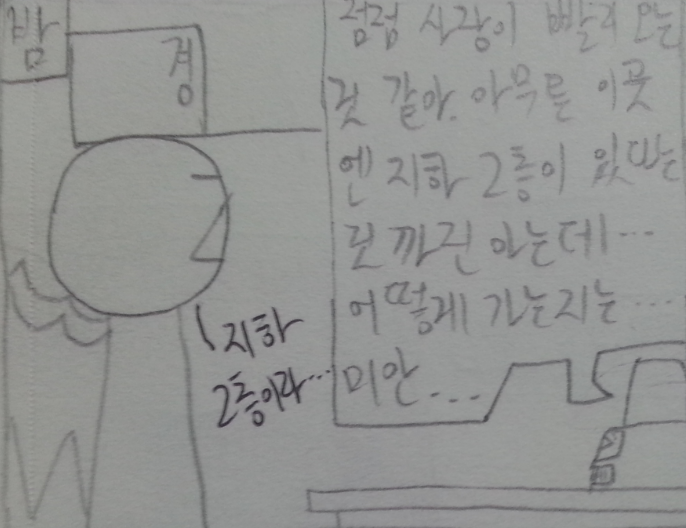 밤
경
점점 사랑이 빨리 오는
것 같아. 아무튼 이곳
엔 지하 2층이 있다는
것 까진 아는데...
어떻게 가는지는...
미안...
지하
2층이라...